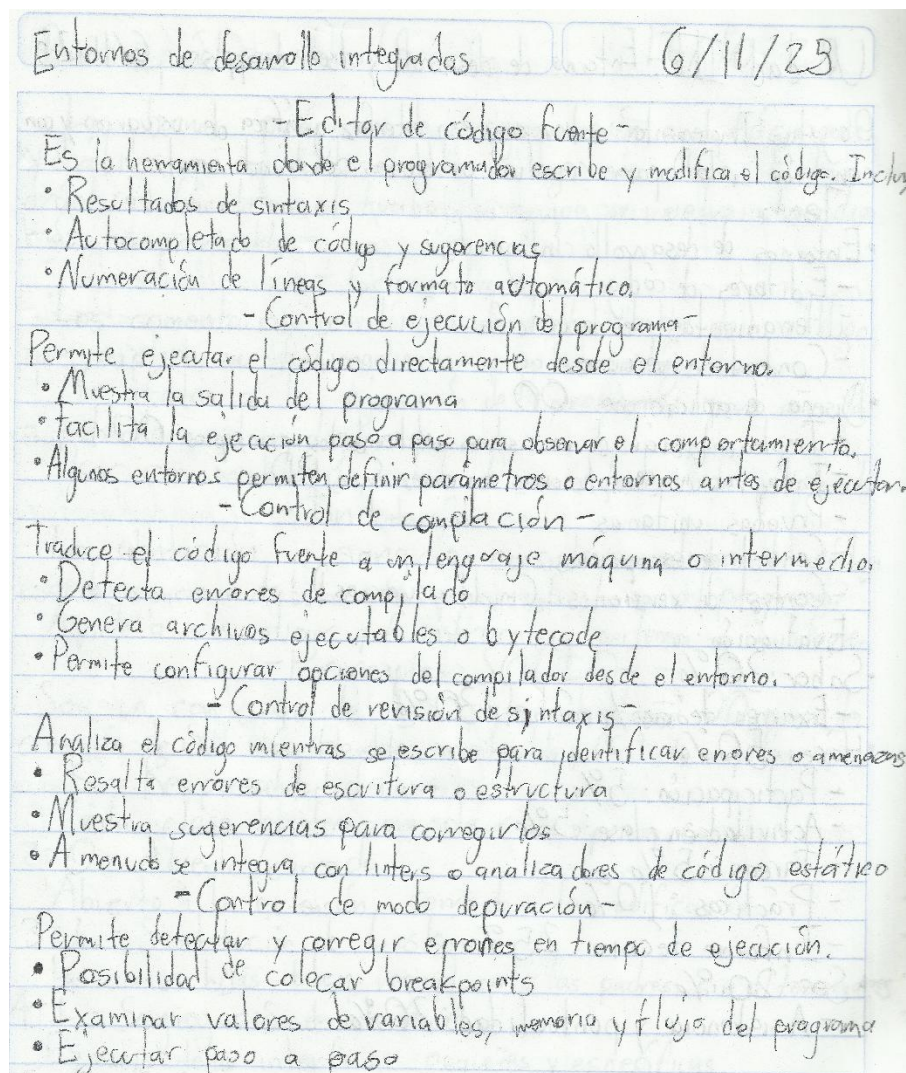 Entornos de desarrollo integrados 6/11/23
- Editor de código fuente -
Es la herramienta donde el programador escribe y modifica el código. Incluy
• Resultados de sintaxis
• Autocompletado de código y sugerencias
• Numeración de líneas y formato automático.
- Control de ejecución del programa -
Permite ejecutar el código directamente desde el entorno.
• Muestra la salida del programa
• Facilita la ejecución paso a paso para observar el comportamiento.
• Algunos entornos permiten definir parámetros o entornos antes de ejecutar.
- Control de compilación -
Traduce el código fuente a un lenguaje máquina o intermedio.
• Detecta errores de compilado
• Genera archivos ejecutables o bytecode
• Permite configurar opciones del compilador desde el entorno.
- Control de revisión de sintaxis -
Analiza el código mientras se escribe para identificar errores o amenazas
• Resalta errores de escritura o estructura
• Muestra sugerencias para corregirlos
• A menudo se integra con linters o analizadores de código estático
- Control de modo depuración -
Permite detectar y corregir errores en tiempo de ejecución.
• Posibilidad de colocar breakpoints
• Examinar valores de variables, memoria y flujo del programa
• Ejecutar paso a paso